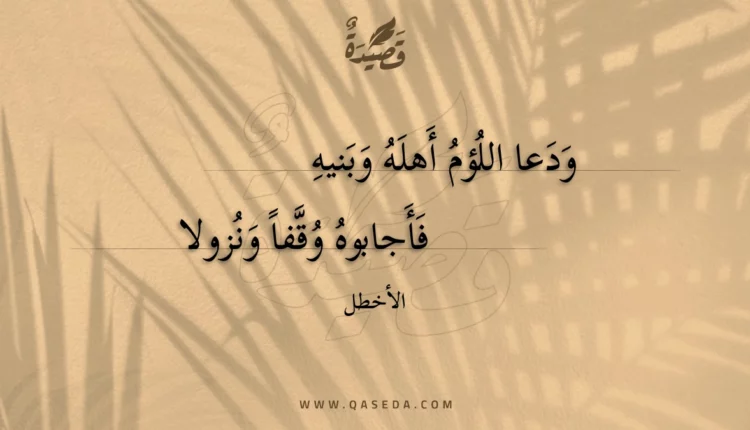 قَصِيدَةٌ
وَدَعا اللُؤمُ أَهلَهُ وَبَنيهِ
فَأَجابوهُ وُقَّفاً وَنُزولا
الأخطل
WWW.QASEDA.COM